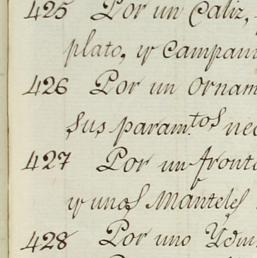 425 Por un Caliz,
plato, y Campani
426 Por un Ornam
sus param.tos nec
427 Por un fronta
y unos Manteles
428 Por uno